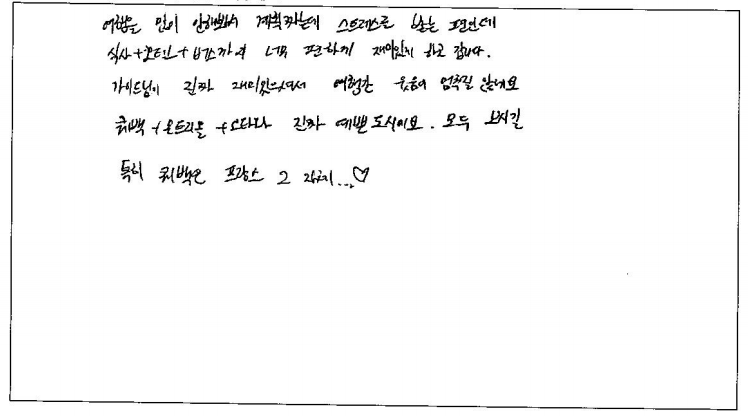 여행은 많이 안해봐서 계획짜는데 스트레스로 받는 편인데
식사+호텔+버스까지 너무 편하게 재미있게 하고 갑니다.
가이드님이 진짜 재미있으셔서 여행간 웃음이 멈추질 않네요
퀘백+몬트리올+오타와 진짜 예쁜도시이요. 모두 보시길
특히 퀘백은 프랑스 그 자체...♡